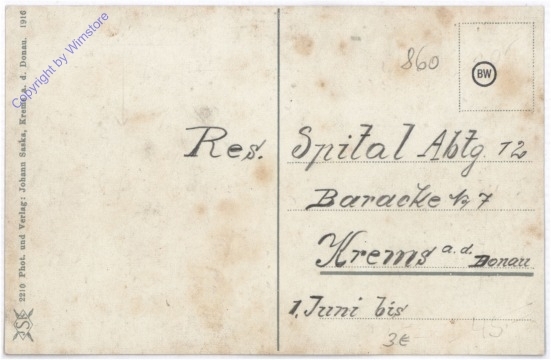 Copyright by Wimstore
2210 Phot. und Verlag: Johann Saska, Krems a. d. Donau. 1916
860
BW
Res. Spital Abtg. 12
Baracke № 7
Krems a. d. Donau
1. Juni bis
3€